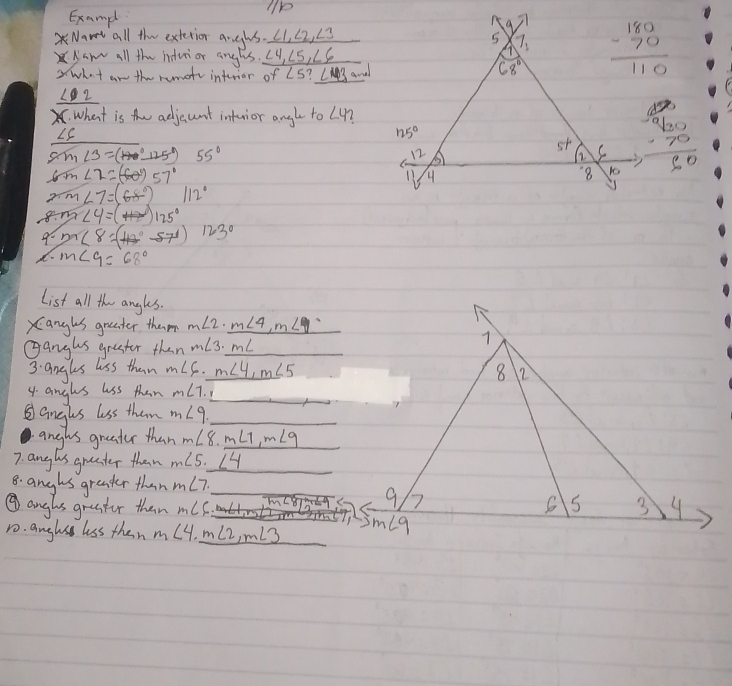 Exampl
1. Nam all the exterior angles. ∠1,∠2,∠3
2. Nam all the interior angles. ∠4,∠5,∠6
3. What are the remote interior of ∠5? and
∠2
What is the adjacent interior angle to ∠4?
∠6
5. m∠3=(125°) 55°
6. m∠2=(60°) 57°
7. m∠7=(68°) 112°
8. m∠4= 125°
9. m∠8=(57°) 123°
m∠9= 68°
5 9 7
1
68°
180
- 70
110
125°
12
11 4
57
2 6
8 10
- 70
60
List all the angles.
angles greater than m∠2. m∠4, m∠9
2 angles greater than m∠3. m∠
3. angles less than m∠6. m∠4, m∠5
4. angles less than m∠1.
5 angles less them m∠9.
angles greater than m∠8. m∠1, m∠9
7. angles greater than m∠5. ∠4
8. angles greater than m∠7.
9 angles greater than m∠6. m∠8, m∠9
m∠9
10. angles less then m∠4. m∠2, m∠3
1
8 2
9 7
6 5
3 4